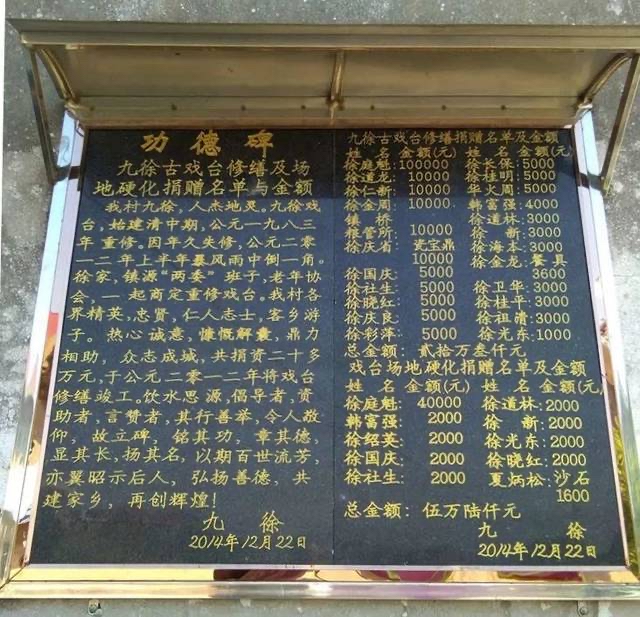 功德碑
九徐古戏台修缮及场
地硬化捐赠名单与金额
我村九徐，人杰地灵。九徐戏
台，始建清中期，公元一九八三
年重修。因年久失修，公元二零
一二年上半年暴风雨中倒一角。
徐家，镇源“两委”班子，老年协
会，一起商定重修戏台。我村各
界精英，忠贤，仁人志士，客乡游
子。热心诚意，慷慨解囊，鼎力
相助，众志成城，共捐资二十多
万元，于公元二零一二年将戏台
修缮竣工。饮水思源，倡导者，资
助者，言赞者，其行善举，令人敬
仰，故立碑，铭其功，章其德，
显其长，扬其名，以期百世流芳，
亦翼昭示后人，弘扬善德，共
建家乡，再创辉煌！
九徐
2014年12月22日
九徐古戏台修缮捐赠名单及金额
姓名 金额(元) 姓名 金额(元)
徐庭魁：100000 徐长保：5000
徐道龙：10000 徐桂明：5000
徐仁新：10000 华火周：5000
徐金周：10000 韩富强：4000
镇桥 徐道林：3000
粮管所：10000 徐新：3000
徐庆省：瓷宝鼎 徐海本：3000
10000 徐金龙：餐具
徐国庆：5000 3600
徐社生：5000 徐卫华：3000
徐晓红：5000 徐桂平：3000
徐庆良：5000 徐祖清：3000
徐彩萍：5000 徐光东：1000
总金额：贰拾万叁仟元
戏台场地硬化捐赠名单及金额
姓名 金额(元) 姓名 金额(元)
徐庭魁：40000 徐道林：2000
韩富强：2000 徐新：2000
徐绍英：2000 徐光东：2000
徐国庆：2000 徐晓红：2000
徐社生：2000 夏炳松：沙石
1600
总金额：伍万陆仟元
九徐
2014年12月22日